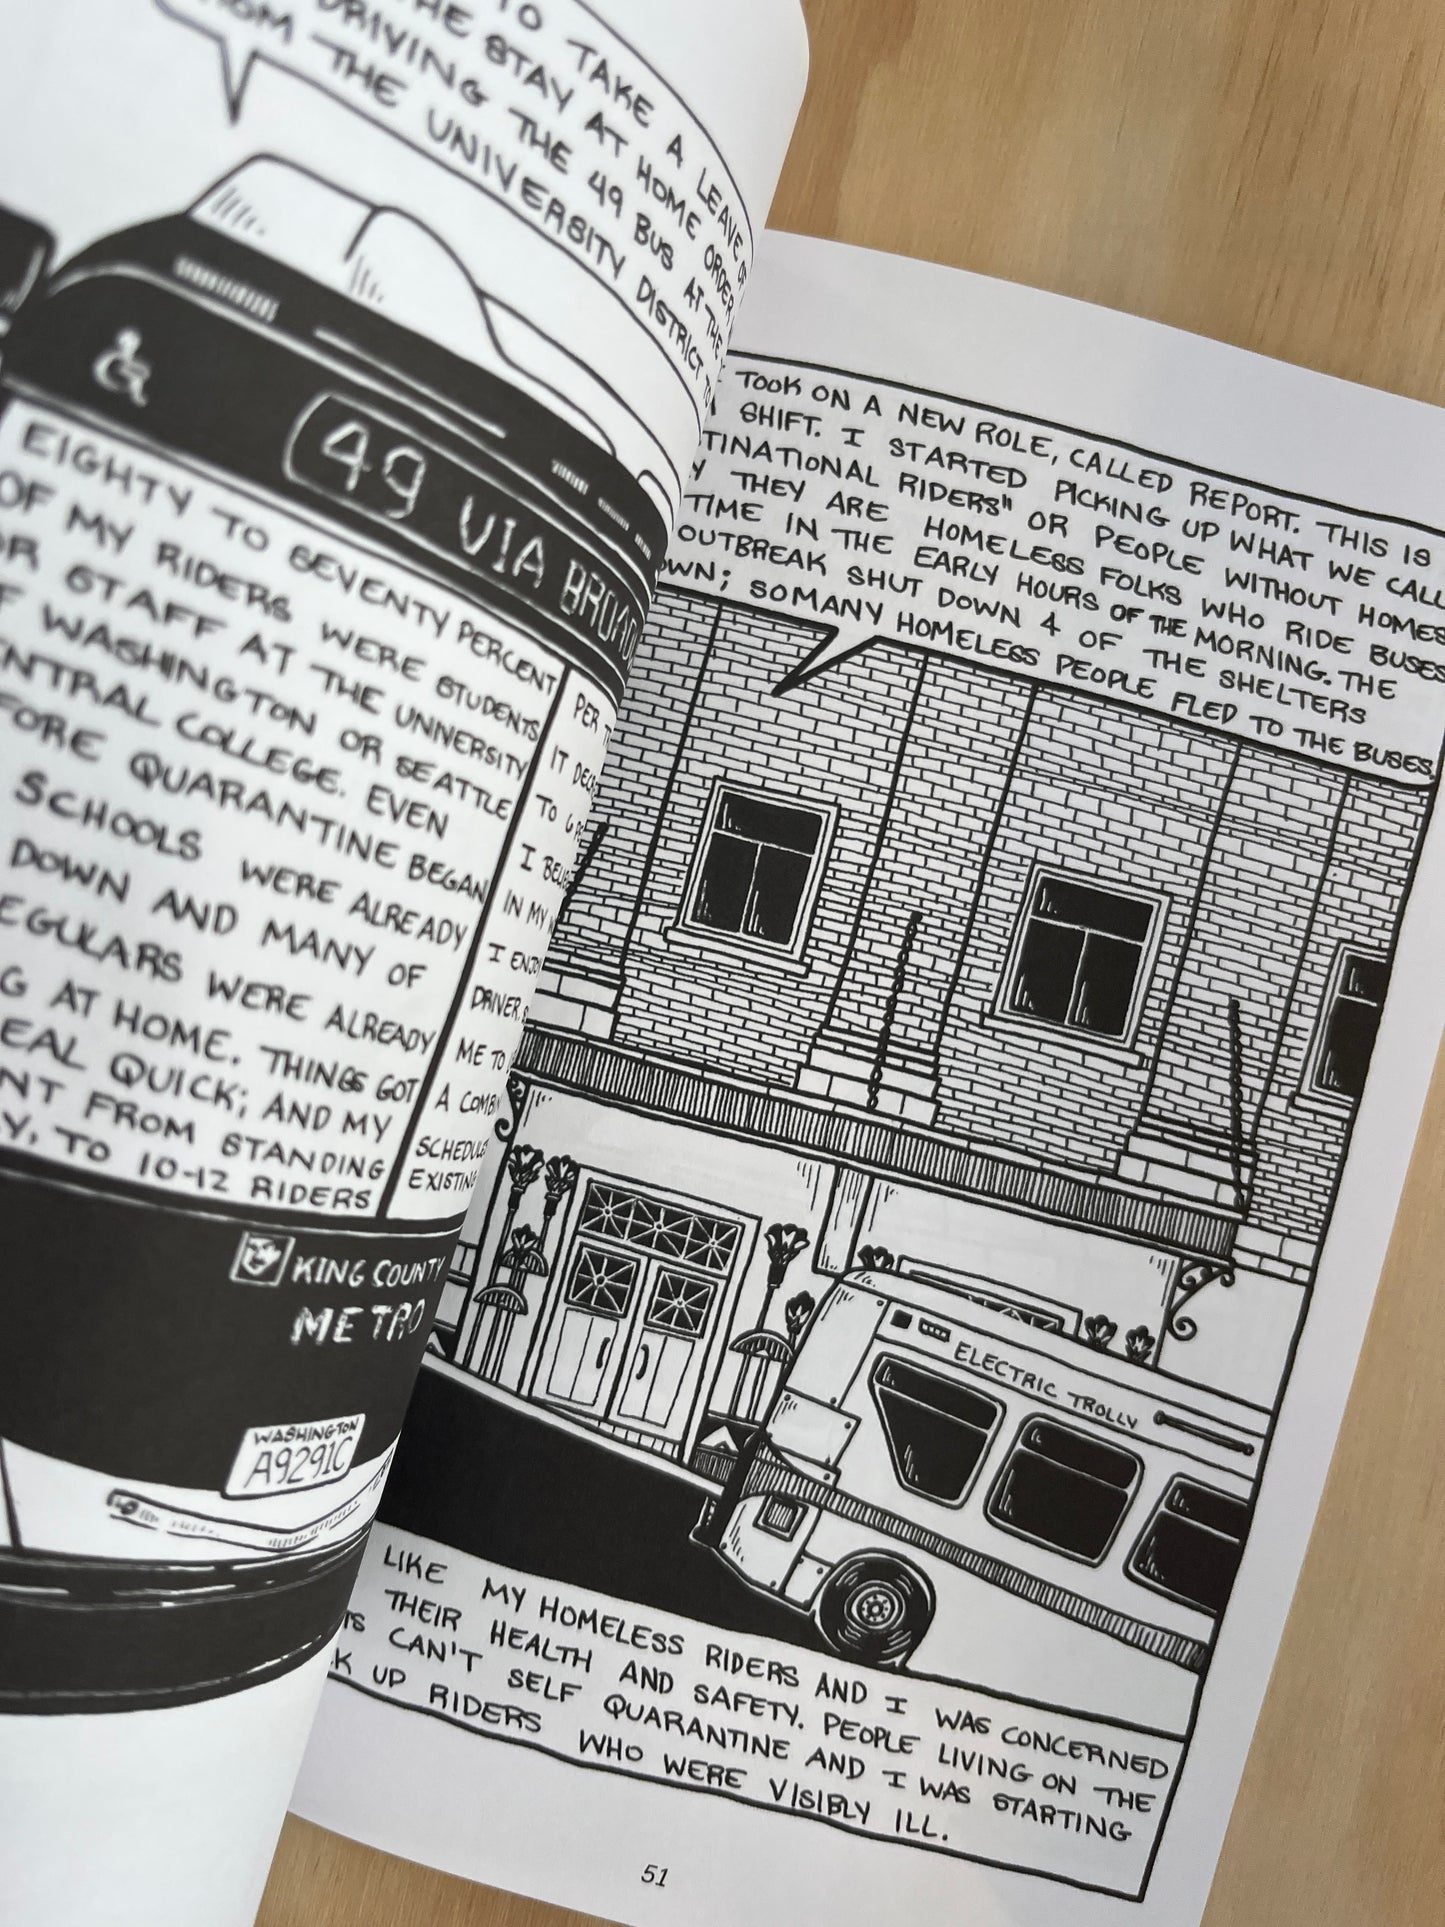 TO TAKE A LEAVE OF
THE STAY AT HOME ORDER
DRIVING THE 49 BUS AT THE
FROM THE UNIVERSITY DISTRICT TO
49 VIA BROAD
EIGHTY TO SEVENTY PERCENT
OF MY RIDERS WERE STUDENTS
OR STAFF AT THE UNIVERSITY
OF WASHINGTON OR SEATTLE
CENTRAL COLLEGE. EVEN
BEFORE QUARANTINE BEGAN
SCHOOLS WERE ALREADY
DOWN AND MANY OF
REGULARS WERE ALREADY
AT HOME. THINGS GOT
REAL QUICK; AND MY
WENT FROM STANDING
TO 10-12 RIDERS
PER
IT
TO 6
I
IN MY
I ENJOY
DRIVER.
ME TO
A
SCHEDULE
EXISTING
KING COUNTY
METRO
WASHINGTON
A9291C
I TOOK ON A NEW ROLE, CALLED REPORT. THIS IS
A SHIFT. I STARTED PICKING UP WHAT WE CALL
RIDERS" OR PEOPLE WITHOUT HOMES
THEY ARE HOMELESS FOLKS WHO RIDE BUSES
TIME IN THE EARLY HOURS OF THE MORNING. THE
OUTBREAK SHUT DOWN 4 OF THE SHELTERS
SOMANY HOMELESS PEOPLE FLED TO THE BUSES.
ELECTRIC TROLLY
LIKE MY HOMELESS RIDERS AND I WAS CONCERNED
THEIR HEALTH AND SAFETY. PEOPLE LIVING ON THE
CAN'T SELF QUARANTINE AND I WAS STARTING
UP RIDERS WHO WERE VISIBLY ILL.
51